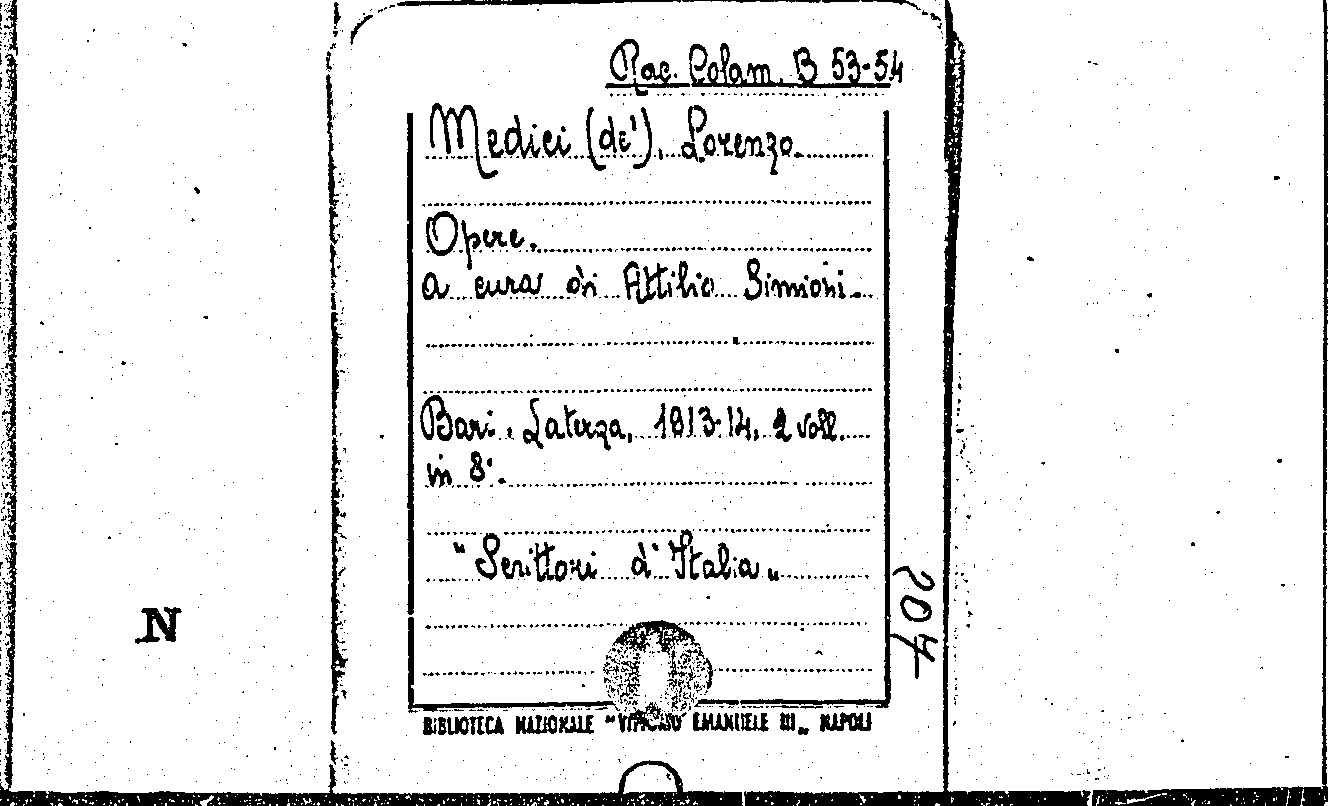 Rac. Colam. B 53-54
Medici (de'), Lorenzo.
Opere.
a cura di Attilio Simioni.
Bari, Laterza, 1913-14, 2 voll.
in 8°.
"Scrittori d'Italia„
204
N
BIBLIOTECA NAZIONALE "VITTORIO EMANUELE III„ NAPOLI